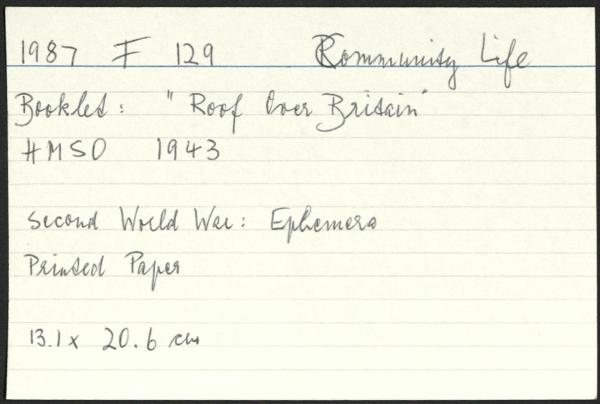 1987 F 129 Community Life
Booklet: "Roof Over Britain"
HMSO 1943
Second World War: Ephemera
Printed Paper
13.1 x 20.6 cm